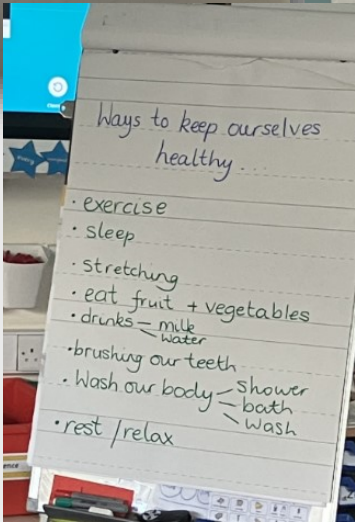 Ways to keep ourselves
healthy...
• exercise
• sleep
• stretching
• eat fruit + vegetables
• drinks – milk
water
• brushing our teeth
• Wash our body – shower
– bath
wash
• rest / relax